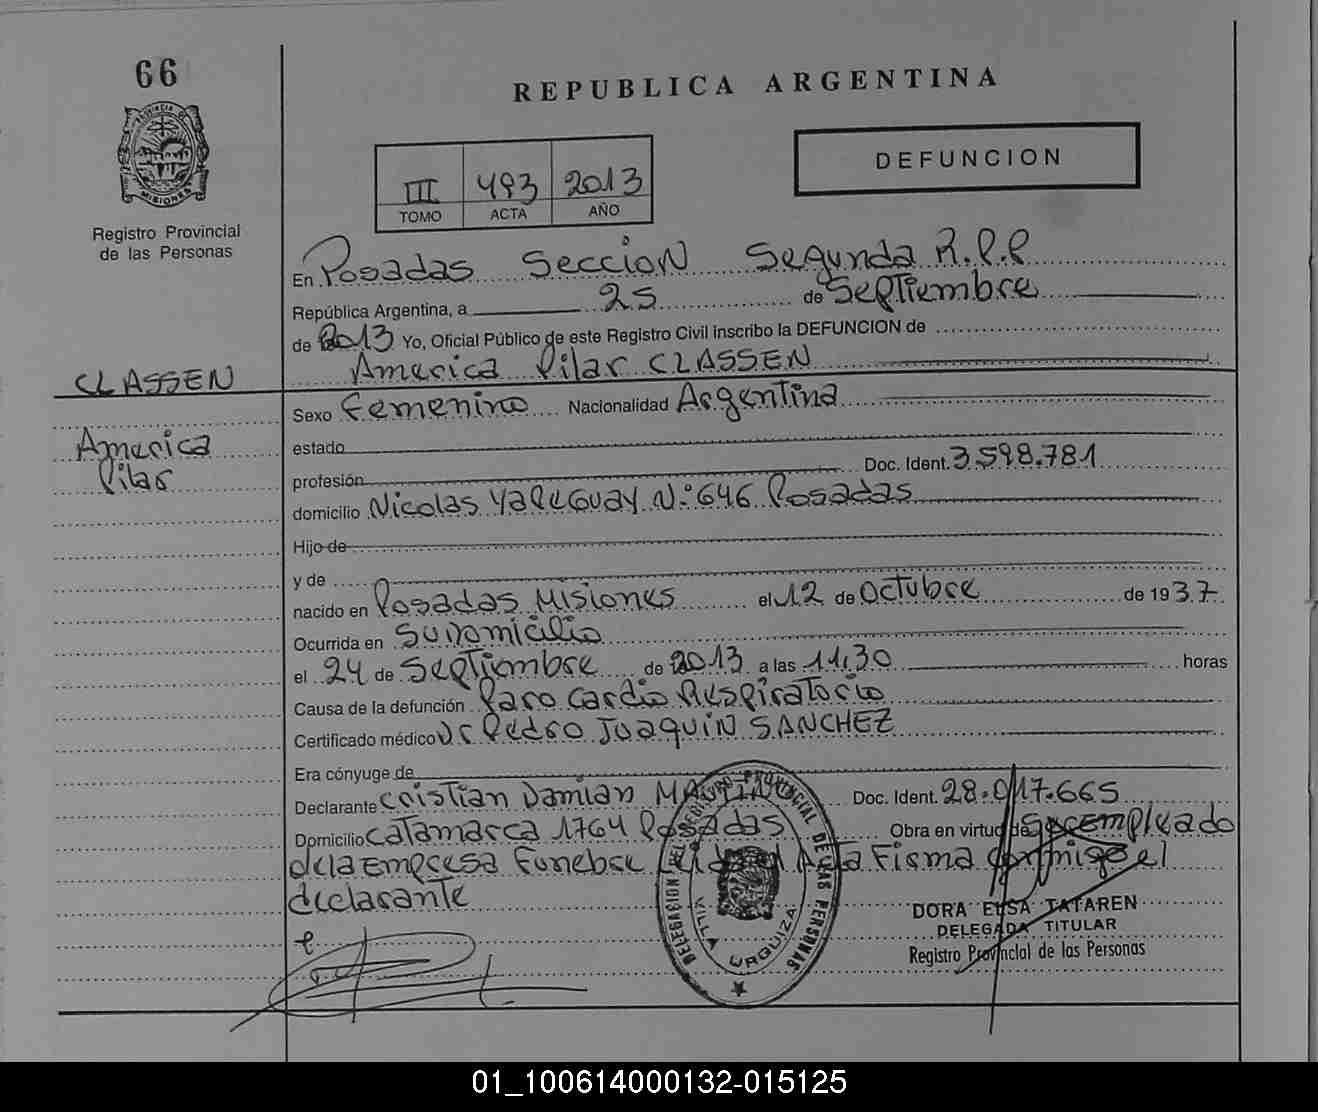 66
REPUBLICA ARGENTINA
PROVINCIA DE
MISIONES
III 493 2013
TOMO ACTA AÑO
DEFUNCION
Registro Provincial
de las Personas
En Posadas Seccion Segunda R.P.P
República Argentina, a 25 de Septiembre
de 2013 Yo, Oficial Público de este Registro Civil inscribo la DEFUNCION de
America Pilar CLASSEN
CLASSEN
America
Pilar
Sexo Femenino Nacionalidad Argentina
estado
profesión Doc. Ident. 3.598.781
domicilio Nicolas Yapeguay N.º 646 Posadas
Hijo de
y de
nacido en Posadas Misiones el 12 de Octubre de 1937
Ocurrida en Su Domicilio
el 24 de Septiembre de 2013 a las 11,30 horas
Causa de la defunción Paro Cardio Respiratorio
Certificado médico Dr Pedro Joaquin SANCHEZ
Era cónyuge de
Declarante Cristian Damian Doc. Ident. 28.017.665
Domicilio Catamarca 1764 Posadas Obra en virtud de Ser empleado
de la Empresa Funebre Leida el Acta Firma conmigo el
declarante
DELEGACION DEL REGISTRO PROVINCIAL DE LAS PERSONAS
VILLA URQUIZA
DORA ELSA TATAREN
DELEGADA TITULAR
Registro Provincial de las Personas
01_100614000132-015125